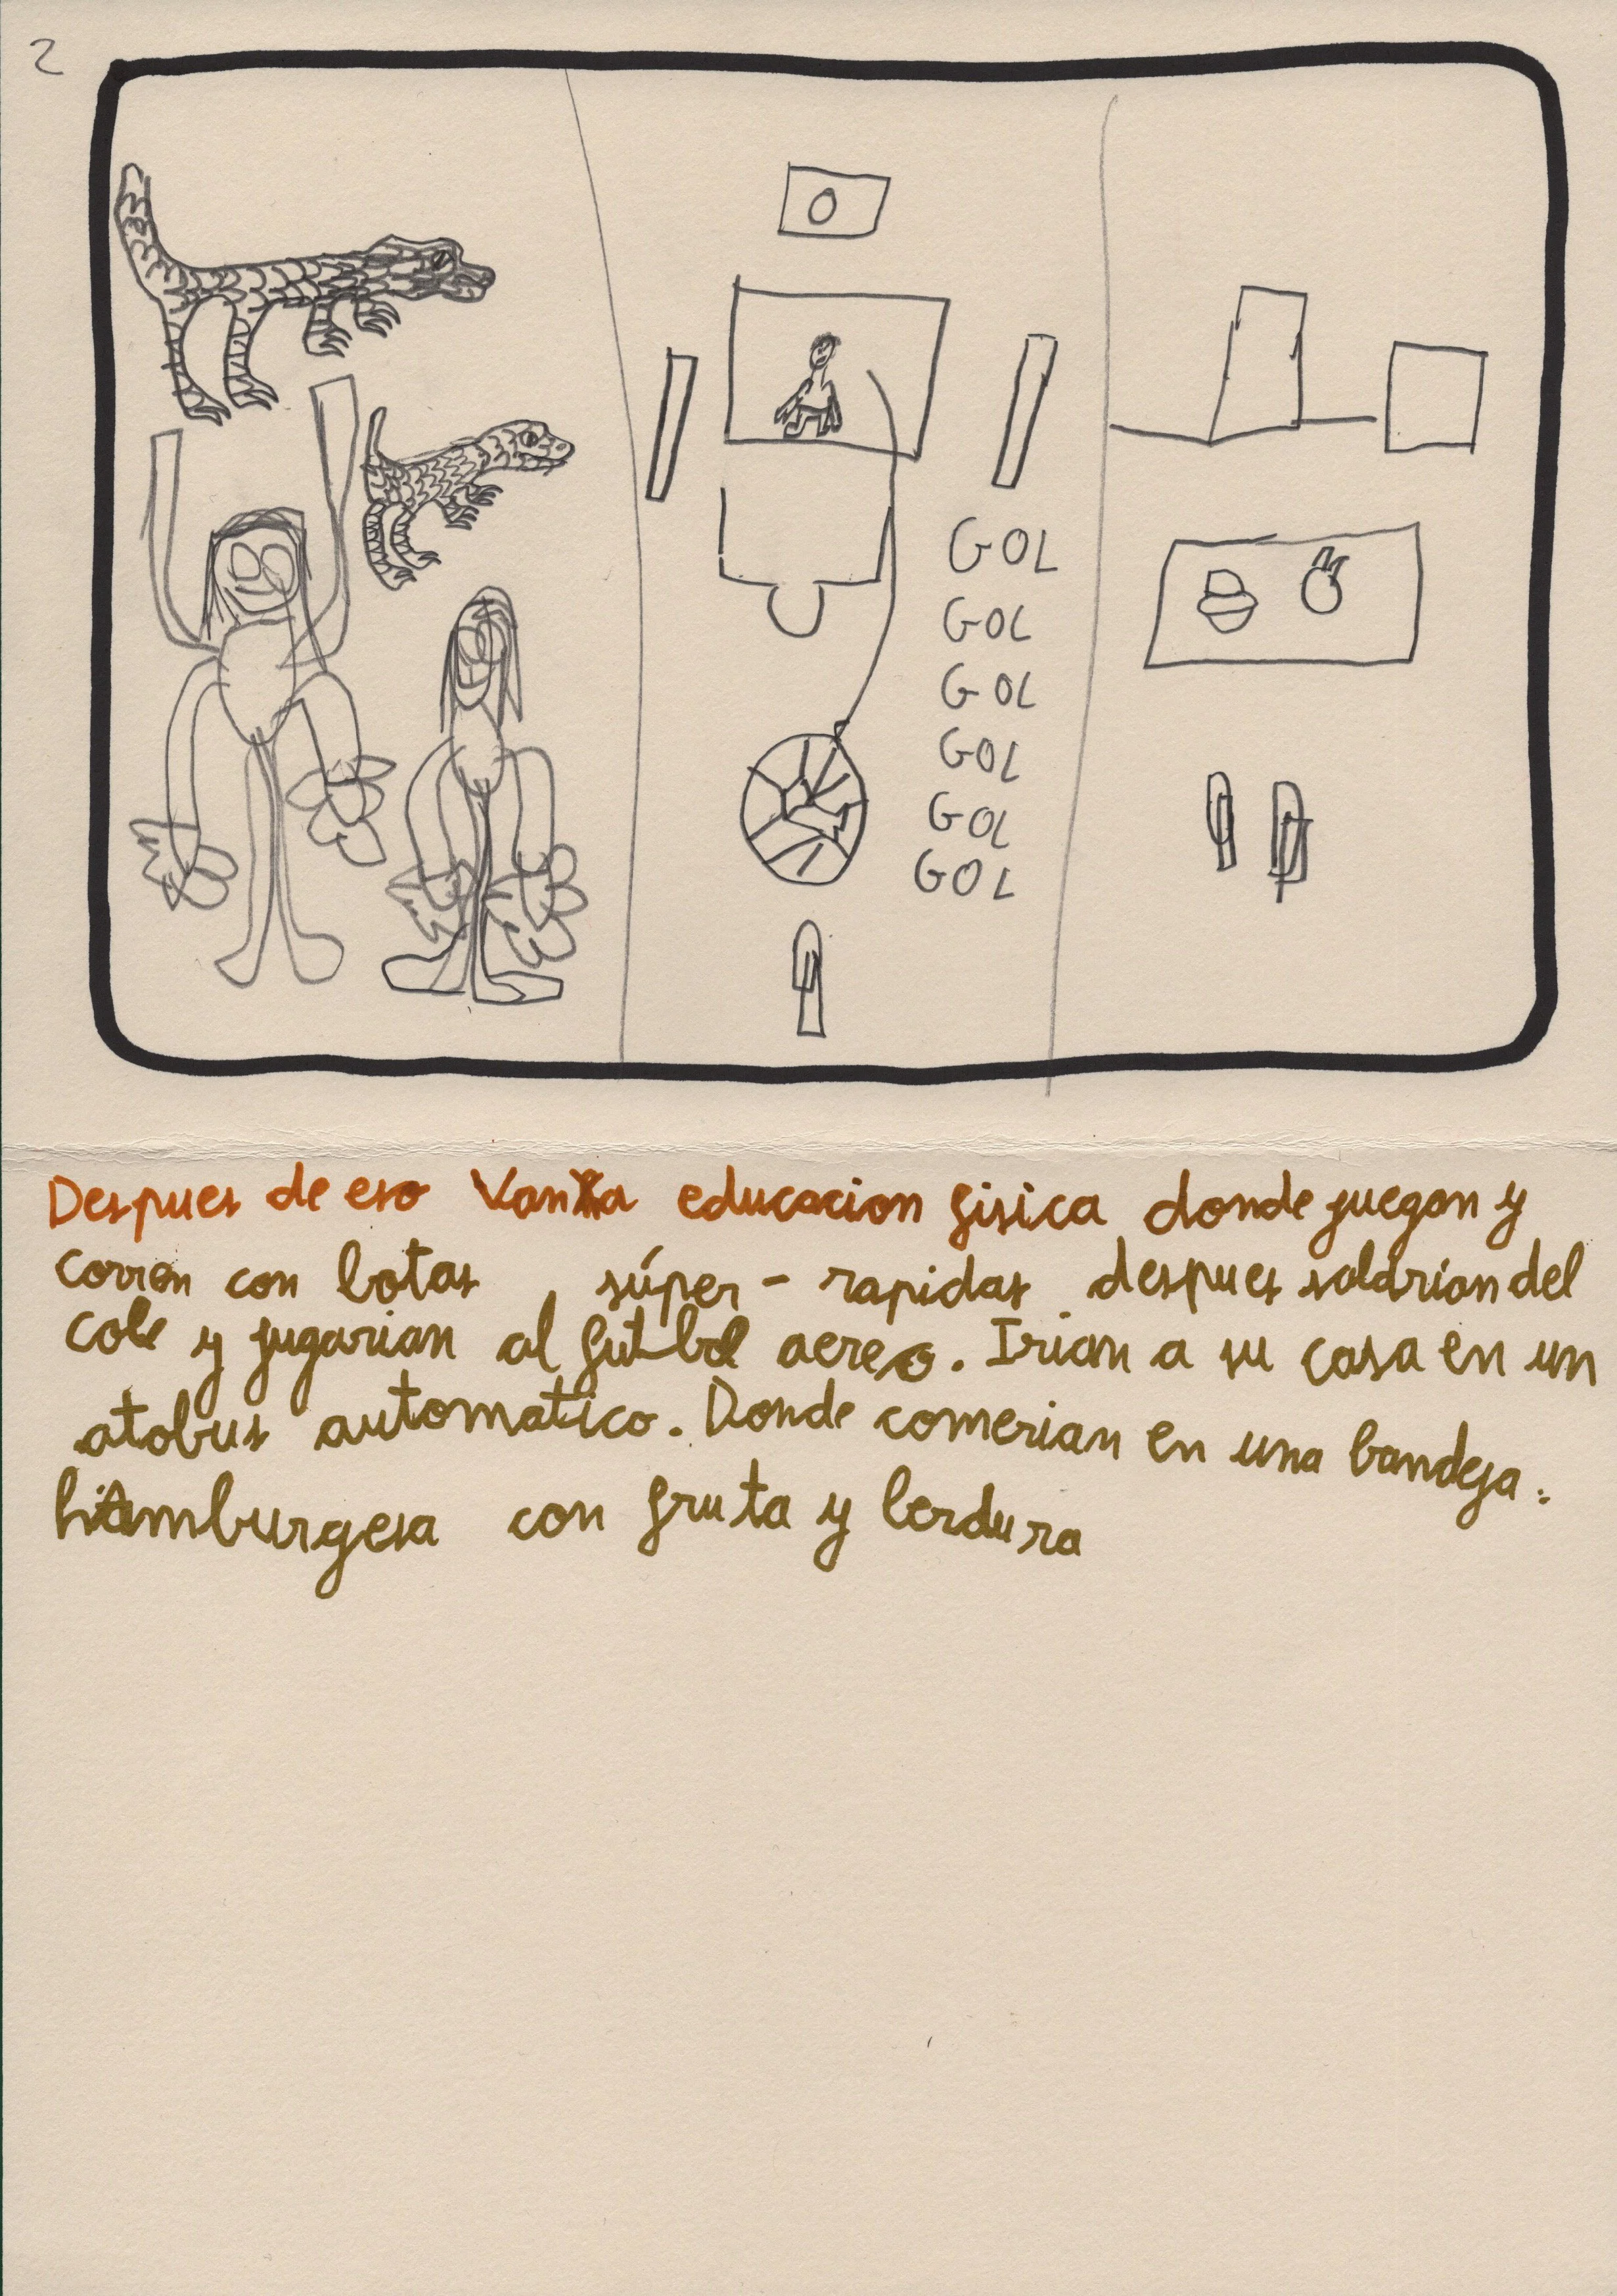 2
O
GOL
GOL
GOL
GOL
GOL
GOL
Despues de eso Van a educacion fisica donde juegan y
corren con botas súper - rapidas despues saldrian del
cole y jugarian al futbol aereo. Irian a su casa en un
atobus automatico. Donde comerian en una bandeja:
hamburgesa con fruta y berdura